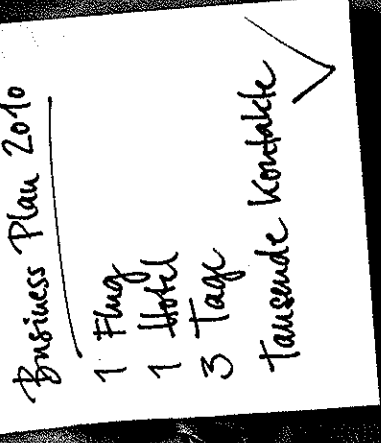 Business Plan 2010
1 Flug
1 Hotel
3 Tage
Tausende Kontakte